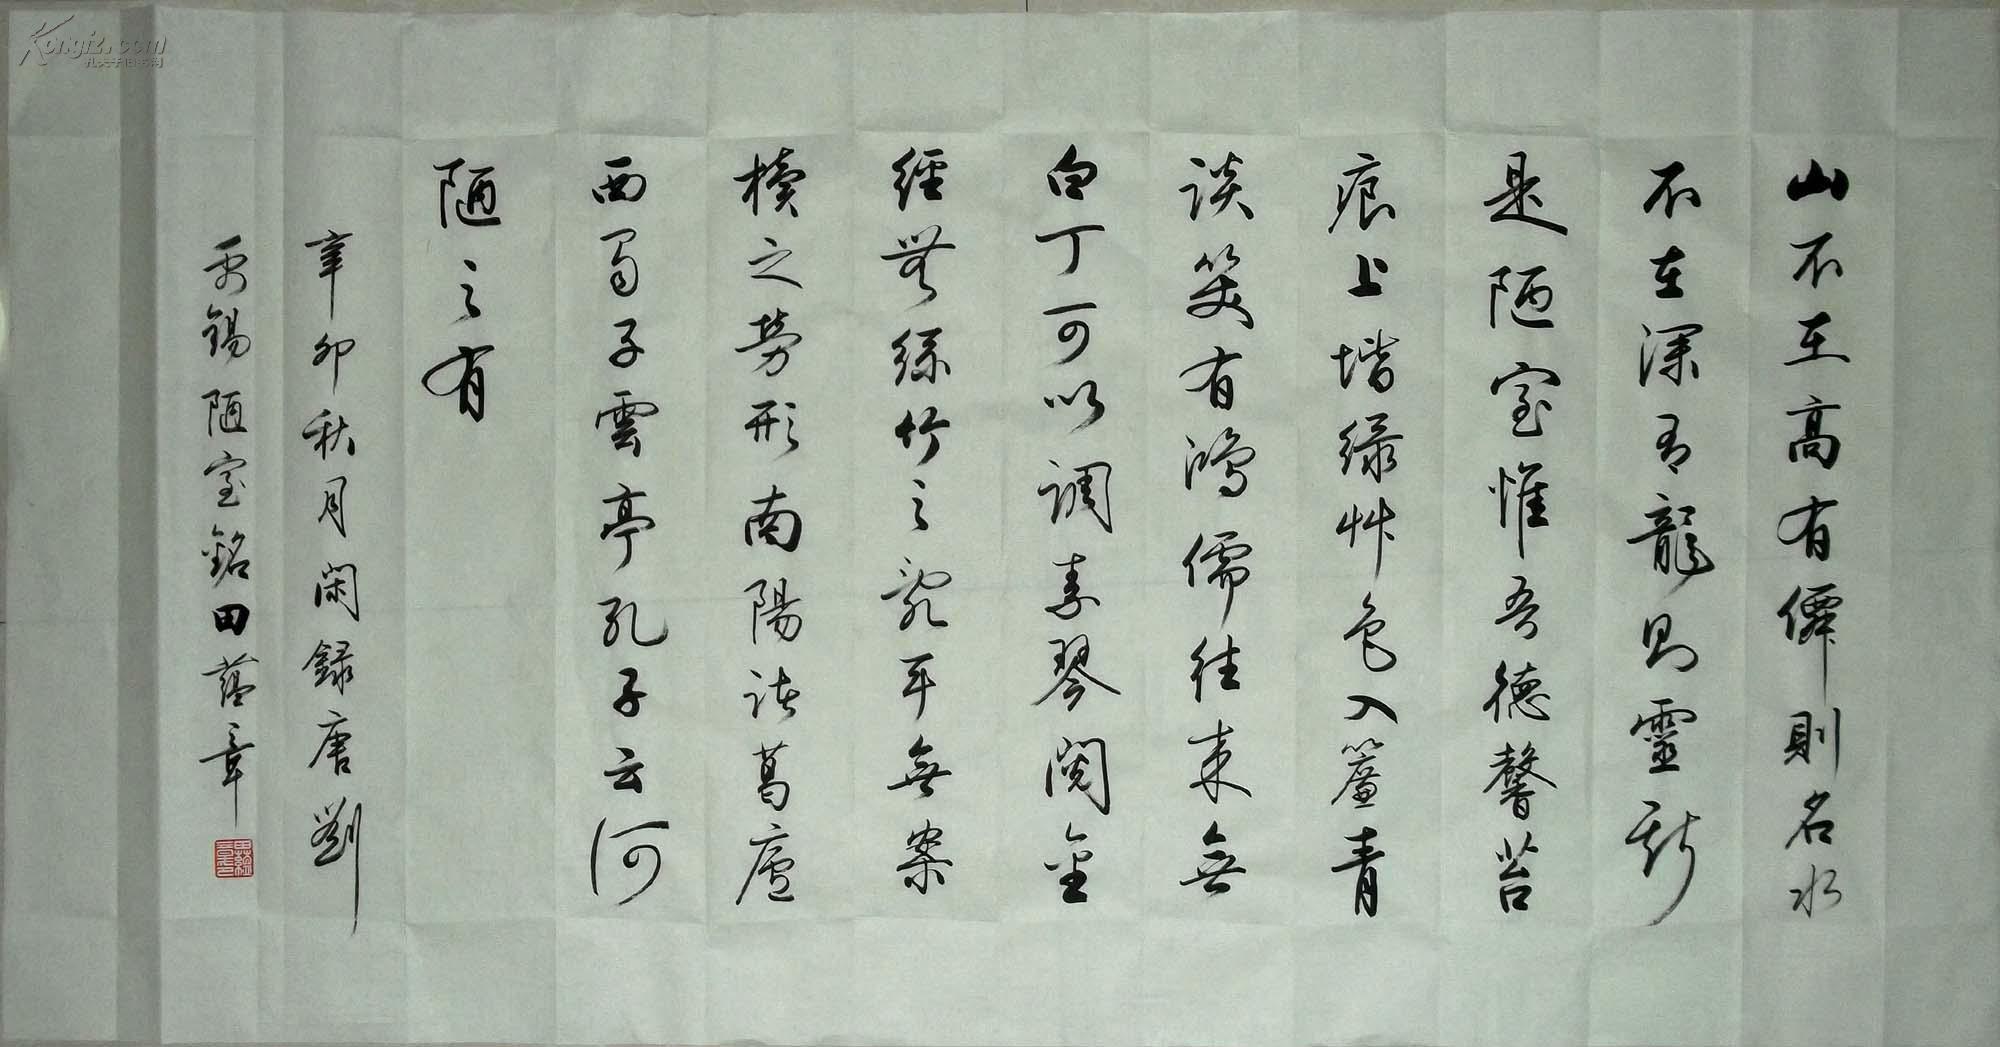 山不在高有僊則名水
不在深有龍則靈斯
是陋室惟吾德馨苔
痕上堦绿艸色入簾青
談笑有鴻儒往来無
白丁可以調素琴閱金
經無絲竹之亂耳無案
櫝之勞形南陽諸葛廬
西蜀子雲亭孔子云何
陋之有
辛卯秋月閑録唐劉
禹錫陋室銘田蘊章
Kongfz.com
孔夫子旧书网